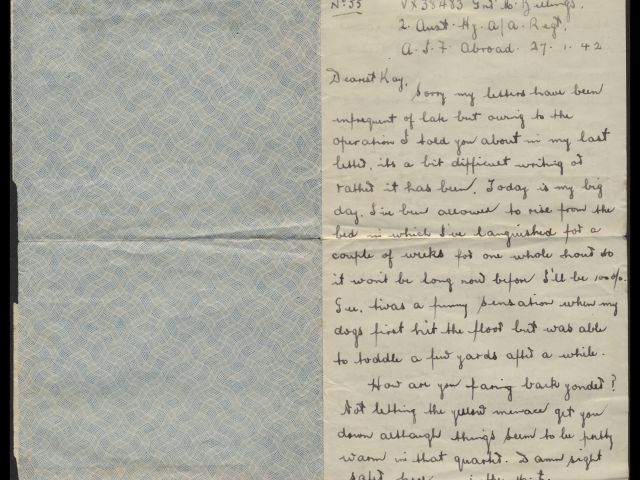 No 35 VX38483 Gnr. H. Gillings.
2. Aust. Hy. A/A. Regt.
A.I.F. Abroad. 27.1.42
Dearest Kay,
Sorry my letters have been
infrequent of late but owing to the
operation I told you about in my last
letter, its a bit difficult writing or
rather it has been. Today is my big
day. I've been allowed to rise from the
bed in which I've languished for a
couple of weeks for one whole hour so
it won't be long now before I'll be 100%.
Gee, twas a funny sensation when my
dogs first hit the floor but was able
to toddle a few yards after a while.
How are you faring back yonder?
Not letting the yellow menace get you
down although things seem to be pretty
warm in that quarter. Damn sight
safer here in the